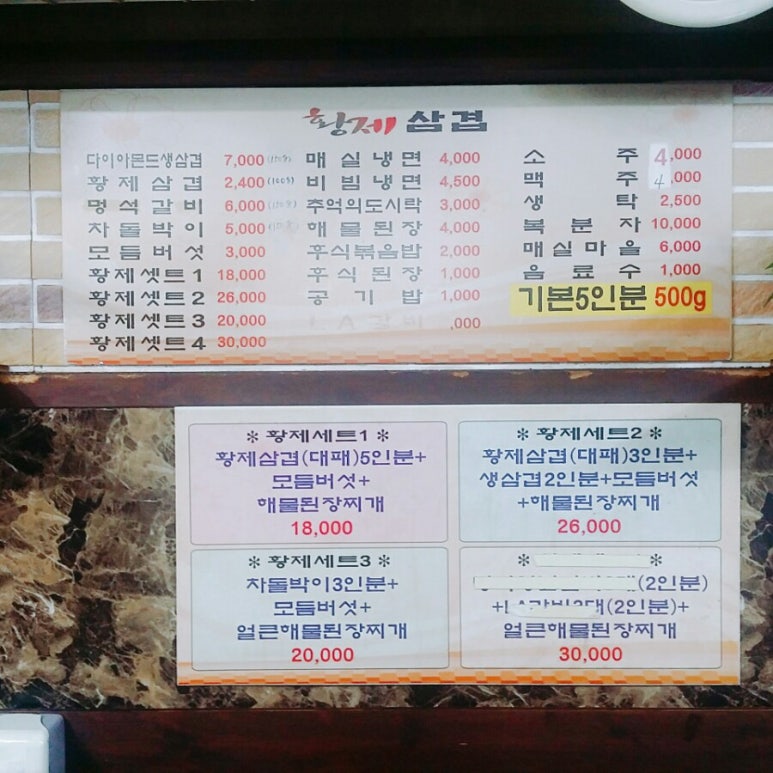 황제 삼겹
다이아몬드생삼겹 7,000
황제삼겹 2,400 (100g)
멍석갈비 6,000
차돌박이 5,000
모듬버섯 3,000
황제셋트1 18,000
황제셋트2 26,000
황제셋트3 20,000
황제셋트4 30,000
매실냉면 4,000
비빔냉면 4,500
추억의도시락 3,000
해물된장 4,000
후식볶음밥 2,000
후식된장 1,000
공기밥 1,000
,000
소주 4,000
맥주 4,000
생탁 2,500
복분자 10,000
매실마을 6,000
음료수 1,000
기본5인분 500g
* 황제세트1 *
황제삼겹(대패)5인분+
모듬버섯+
해물된장찌개
18,000
* 황제세트2 *
황제삼겹(대패)3인분+
생삼겹2인분+모듬버섯
+해물된장찌개
26,000
* 황제세트3 *
차돌박이3인분+
모듬버섯+
얼큰해물된장찌개
20,000
* *
(2인분)
(2인분)+
얼큰해물된장찌개
30,000